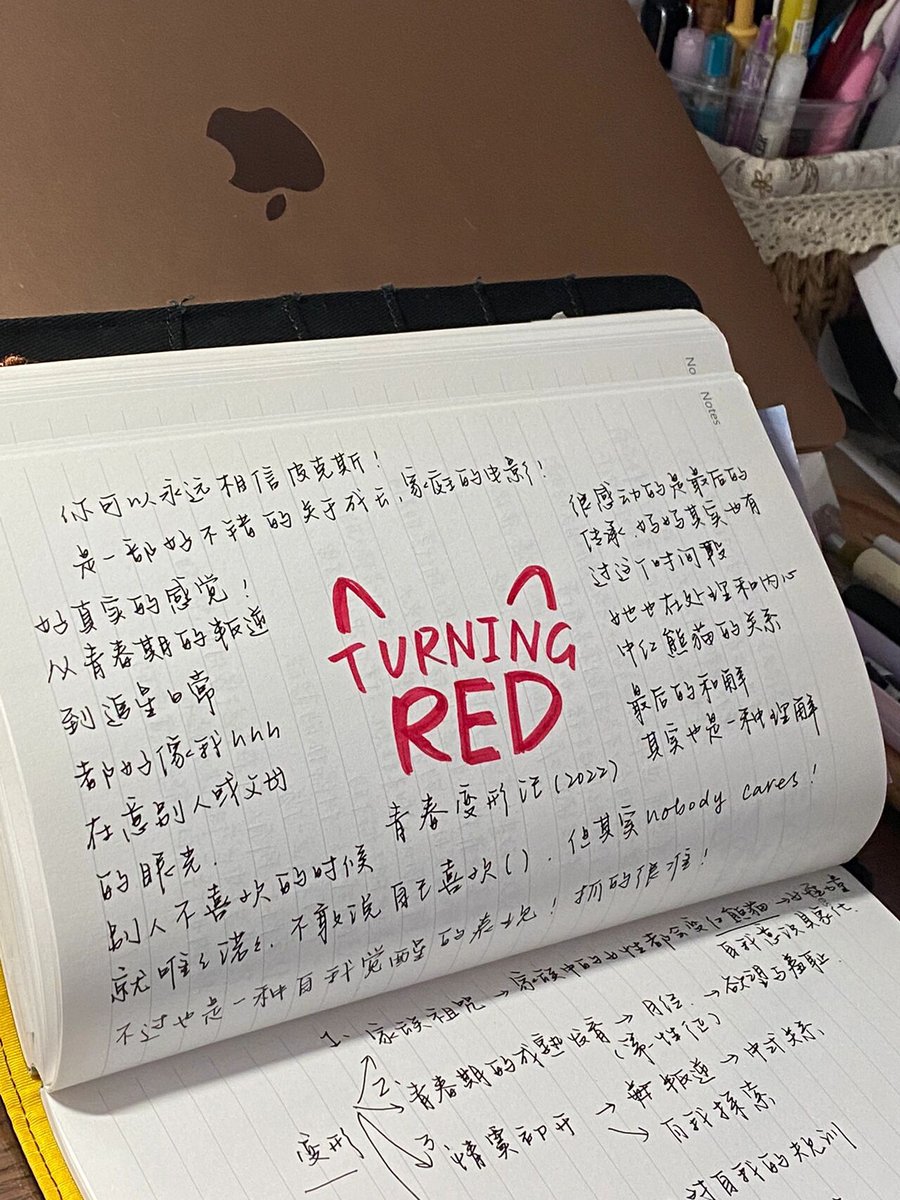 No
Notes
你可以永远相信皮克斯!
是一部好不错的关于成长,家庭的电影!
好真实的感觉!
从青春期的叛逆
到追星日常
都好像我hhh
在意别人或父母
的眼光.
别人不喜欢的时候
就唯々诺々.不敢说自己喜欢().但其实nobody cares!
不过也是一种自我觉醒的表现!抓的很准!
TURNING
RED
青春变形记(2022)
很感动的是最后的
传承.妈妈其实也有
过这个时间段
她也在处理和内心
中红熊猫的关系
最后的和解
其实也是一种理解
变形
1. 家族祖咒→家族中的女性都会变红熊猫→
自我意识具象化.
2. 青春期的成熟发育→月经.→欲望与羞耻.
(第一性征)
3 情窦初开→叛逆→中式关系
↘自我探索
对自我的规训